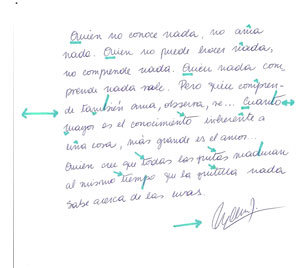 Quien no conoce nada, no ama
nada. Quien no puede hacer nada,
no comprende nada. Quien nada com
prende nada vale. Pero quien compren-
de también ama, observa, ve... Cuanto
mayor es el conocimiento inherente a
una cosa, más grande es el amor...
Quien cree que todas las frutas maduran
al mismo tiempo que las frutillas nada
sabe acerca de las uvas.